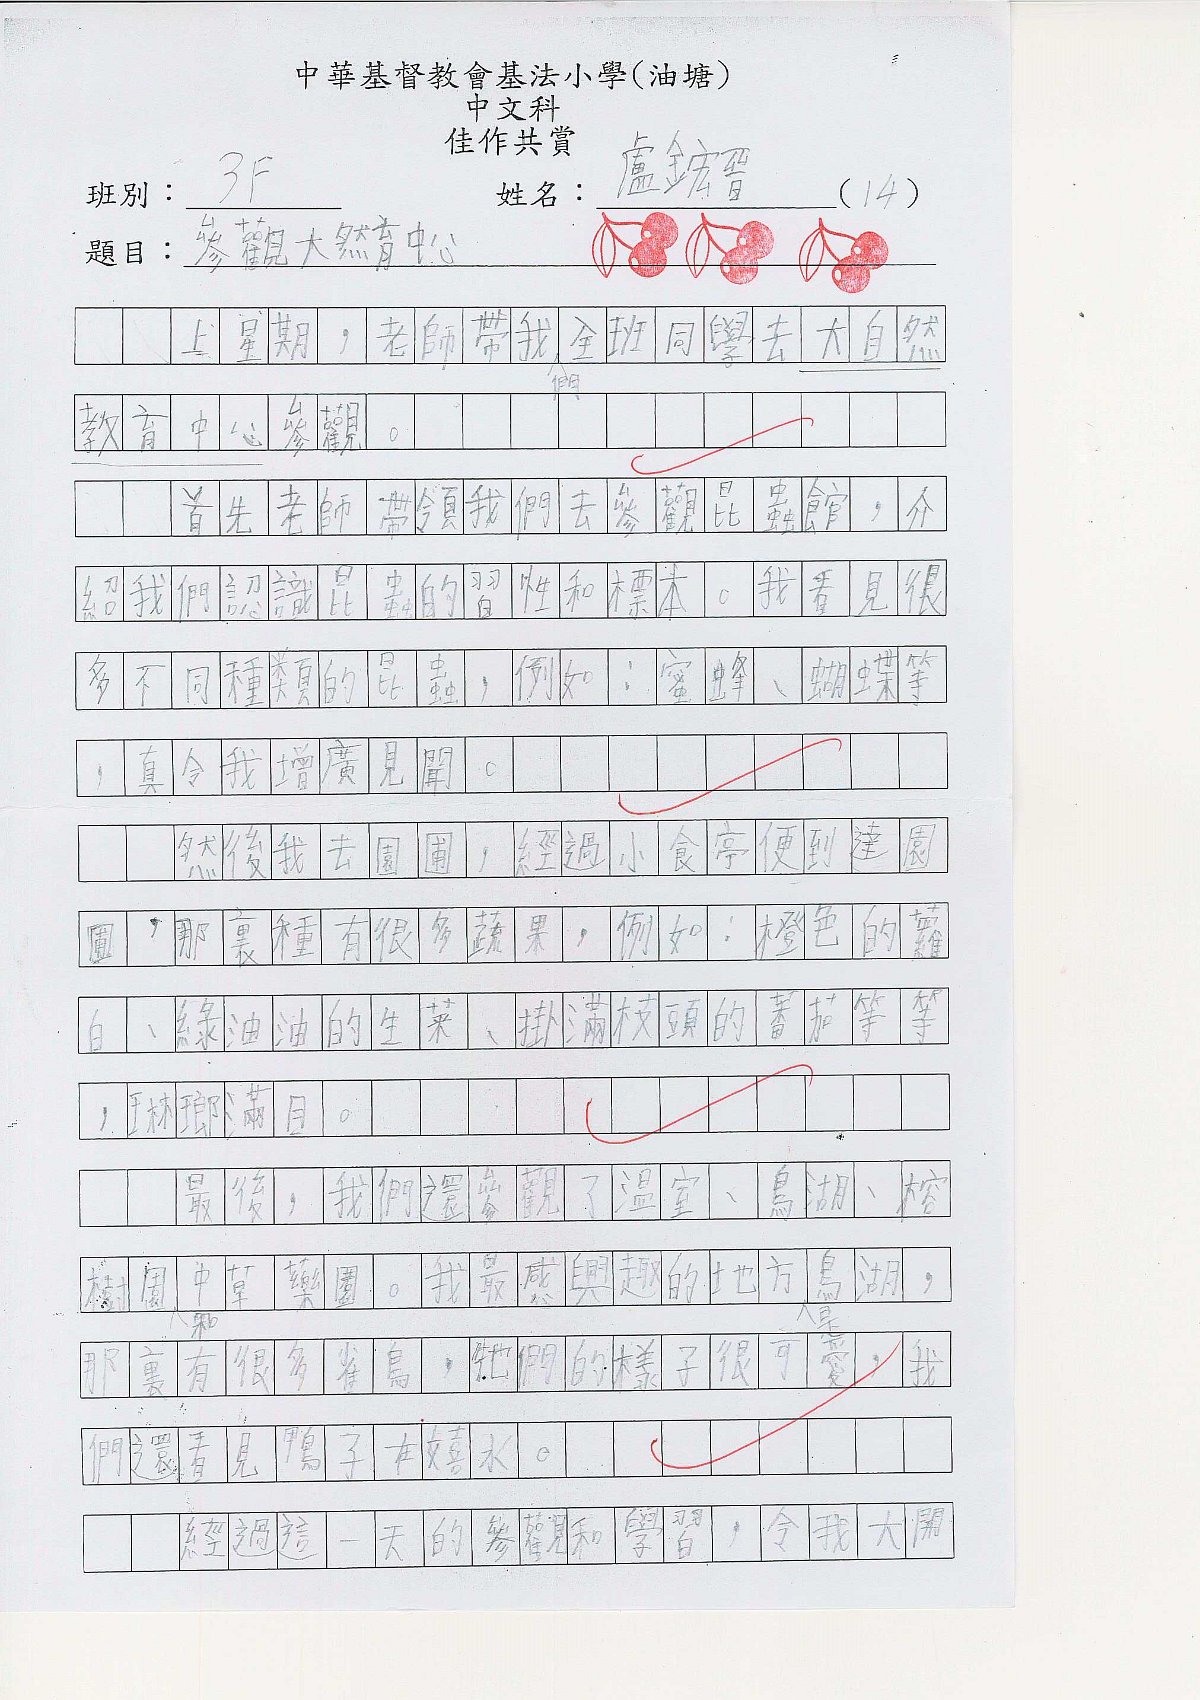 中華基督教會基法小學(油塘)
中文科
佳作共賞
班別：3F 姓名：盧鋐晉(14)
題目：參觀大然育中心
上星期，老師帶我們全班同學去大自然
教育中心參觀。
首先老師帶領我們去參觀昆蟲館，介
紹我們認識昆蟲的習性和標本。我看見很
多不同種類的昆蟲，例如：蜜蜂、蝴蝶等
，真令我增廣見聞。
然後我去園圃，經過小食亭便到達園
圃，那裏種有很多蔬果，例如：橙色的蘿
白、綠油油的生菜、掛滿枝頭的蕃茄等等
，琳瑯滿目。
最後，我們還參觀了溫室、鳥湖、榕
樹園和中草藥園。我最感興趣的地方是鳥湖，
那裏有很多雀鳥，牠們的樣子很可愛，我
們還看見鴨子在嬉水。
經過這一天的參觀和學習，令我大開